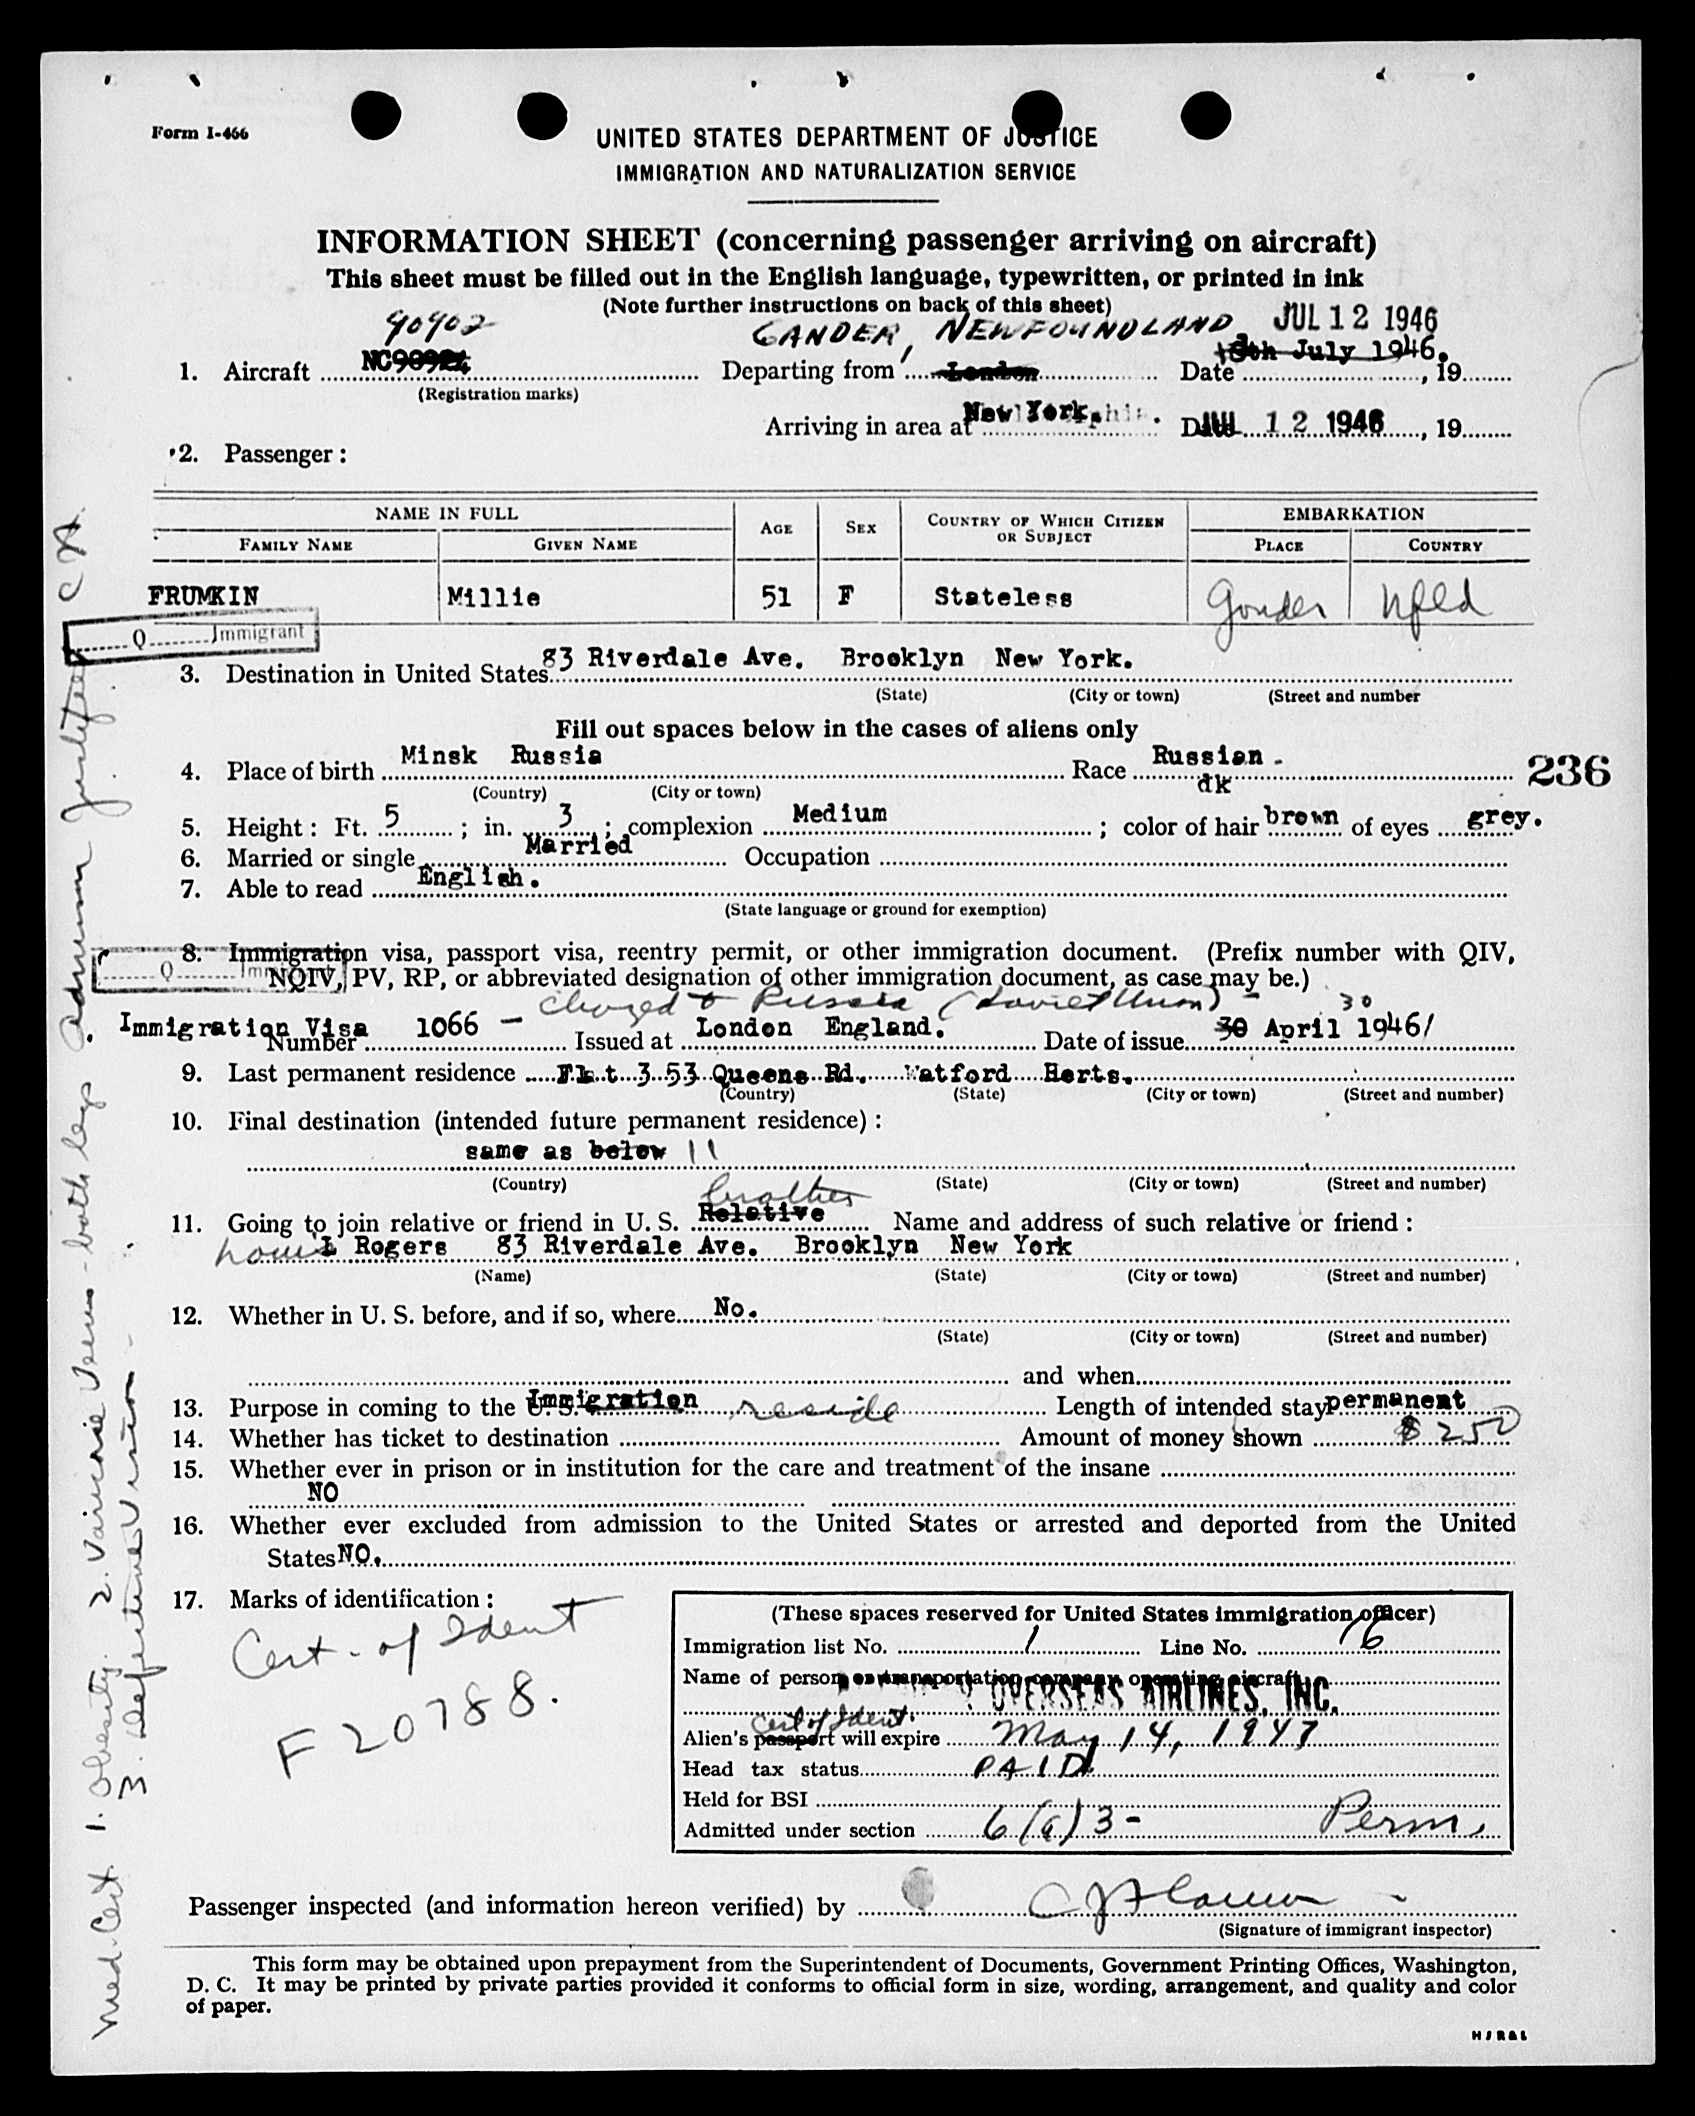 Form I-466
UNITED STATES DEPARTMENT OF JUSTICE
IMMIGRATION AND NATURALIZATION SERVICE
INFORMATION SHEET (concerning passenger arriving on aircraft)
This sheet must be filled out in the English language, typewritten, or printed in ink
(Note further instructions on back of this sheet)
90902 GANDER, NEWFOUNDLAND JUL 12 1946
1. Aircraft Departing from London Date 10th July 1946. , 19
(Registration marks)
Arriving in area at New York. Date JUL 12 1946 , 19
2. Passenger :
NAME IN FULL AGE SEX COUNTRY OF WHICH CITIZEN OR SUBJECT EMBARKATION
FAMILY NAME GIVEN NAME PLACE COUNTRY
FRUMKIN Millie 51 F Stateless Gander Nfld
Q Immigrant
3. Destination in United States 83 Riverdale Ave. Brooklyn New York.
(State) (City or town) (Street and number
Fill out spaces below in the cases of aliens only
4. Place of birth Minsk Russia Race Russian - 236
(Country) (City or town)
5. Height : Ft. 5 ; in. 3 ; complexion Medium ; color of hair dk brown of eyes grey.
6. Married or single Married Occupation
7. Able to read English.
(State language or ground for exemption)
8. Immigration visa, passport visa, reentry permit, or other immigration document. (Prefix number with QIV,
Q NQIV, PV, RP, or abbreviated designation of other immigration document, as case may be.)
Charged to Russia (Soviet Union) - 30
Immigration Visa Number 1066 - Issued at London England. Date of issue 30 April 1946/
9. Last permanent residence Flat 3 53 Queens Rd. Watford Herts.
(Country) (State) (City or town) (Street and number)
10. Final destination (intended future permanent residence) :
same as below 11
(Country) (State) (City or town) (Street and number)
brother
11. Going to join relative or friend in U. S. Relative Name and address of such relative or friend :
Louis L Rogers 83 Riverdale Ave. Brooklyn New York
(Name) (State) (City or town) (Street and number)
12. Whether in U. S. before, and if so, where No.
(State) (City or town) (Street and number)
and when
13. Purpose in coming to the U. S. Immigration reside Length of intended stay permanent
14. Whether has ticket to destination Amount of money shown $ 250
15. Whether ever in prison or in institution for the care and treatment of the insane
NO
16. Whether ever excluded from admission to the United States or arrested and deported from the United
States NO.
17. Marks of identification :
Cert. of Ident
F20788.
(These spaces reserved for United States immigration officer)
Immigration list No. 1 Line No. 16
Name of person or transportation company operating aircraft
OVERSEAS AIRLINES, INC.
Cert of Ident.
Alien's passport will expire May 14, 1947
Head tax status PAID
Held for BSI
Admitted under section 6(a)3- Perm.
Passenger inspected (and information hereon verified) by
(Signature of immigrant inspector)
This form may be obtained upon prepayment from the Superintendent of Documents, Government Printing Offices, Washington,
D. C. It may be printed by private parties provided it conforms to official form in size, wording, arrangement, and quality and color
of paper.
Med. Cert. 1. Obesity. 2. Varicose Veins - both legs
3. Defective Vision -